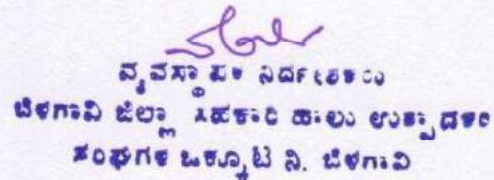 ವ್ಯವಸ್ಥಾಪಕ ನಿರ್ದೇಶಕರು
ಬೆಳಗಾವಿ ಜಿಲ್ಲಾ ಸಹಕಾರಿ ಹಾಲು ಉತ್ಪಾದಕರ
ಸಂಘಗಳ ಒಕ್ಕೂಟ ನಿ. ಬೆಳಗಾವಿ